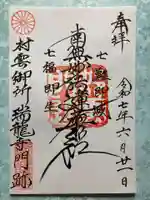 奉拝
令和七年六月廿一日
七難即滅
南無妙法蓮華経
七福即生
村雲御所
瑞龍寺門跡